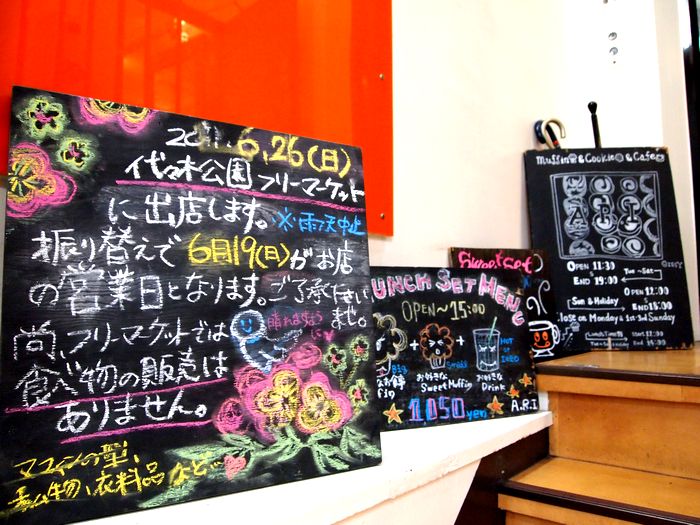 6.26(日)
代々木公園フリーマーケット
に出店します。※雨天中止
振り替えで6月19(日)がお店
の営業日となります。ご了承下さい
ませ。
尚、フリーマーケットでは
晴れますように
食べ物の販売は
ありません。
マフィンの型、
編み物、衣料品 など…
Sweet Set
LUNCH SET MENU
OPEN～15:00
お好きな
Sweet Muffin
お好きな
Drink
HOT
or
ICED
1,050 yen
A.R.I
Muffin & Cookie & Cafe
OPEN 11:30
Tue~Sat
END 19:00
Sun & Holiday
OPEN 12:00
END 18:00
Close on Monday & 1st.3rd Sunday